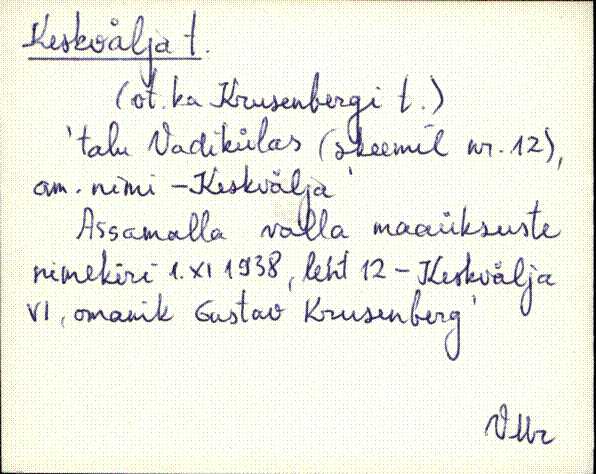 Keskvälja t.
(öt. ka Krusenbergi t.)
'talu Vadikülas (skeemil nr. 12),
am. nimi - Keskvälja'
Assamalla valla maaüksuste
nimekiri 1. XI 1938, leht 12 - Keskvälja
VI, omanik Gustav Krusenberg'